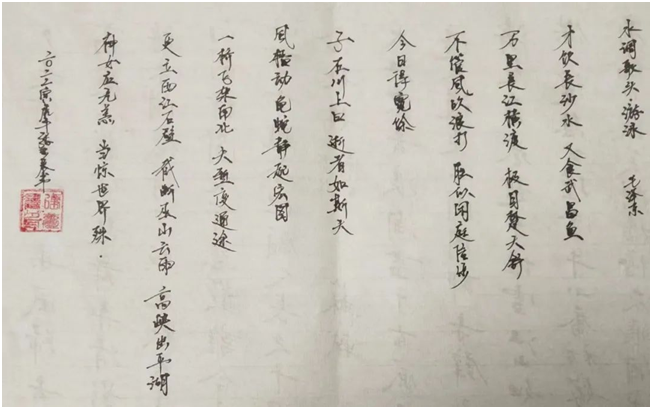 水调歌头·游泳 毛泽东
才饮长沙水 又食武昌鱼
万里长江横渡 极目楚天舒
不管风吹浪打 胜似闲庭信步
今日得宽馀
子在川上曰 逝者如斯夫
风樯动 龟蛇静 起宏图
一桥飞架南北 天堑变通途
更立西江石壁 截断巫山云雨 高峡出平湖
神女应无恙 当惊世界殊.
二〇二二寅虎年